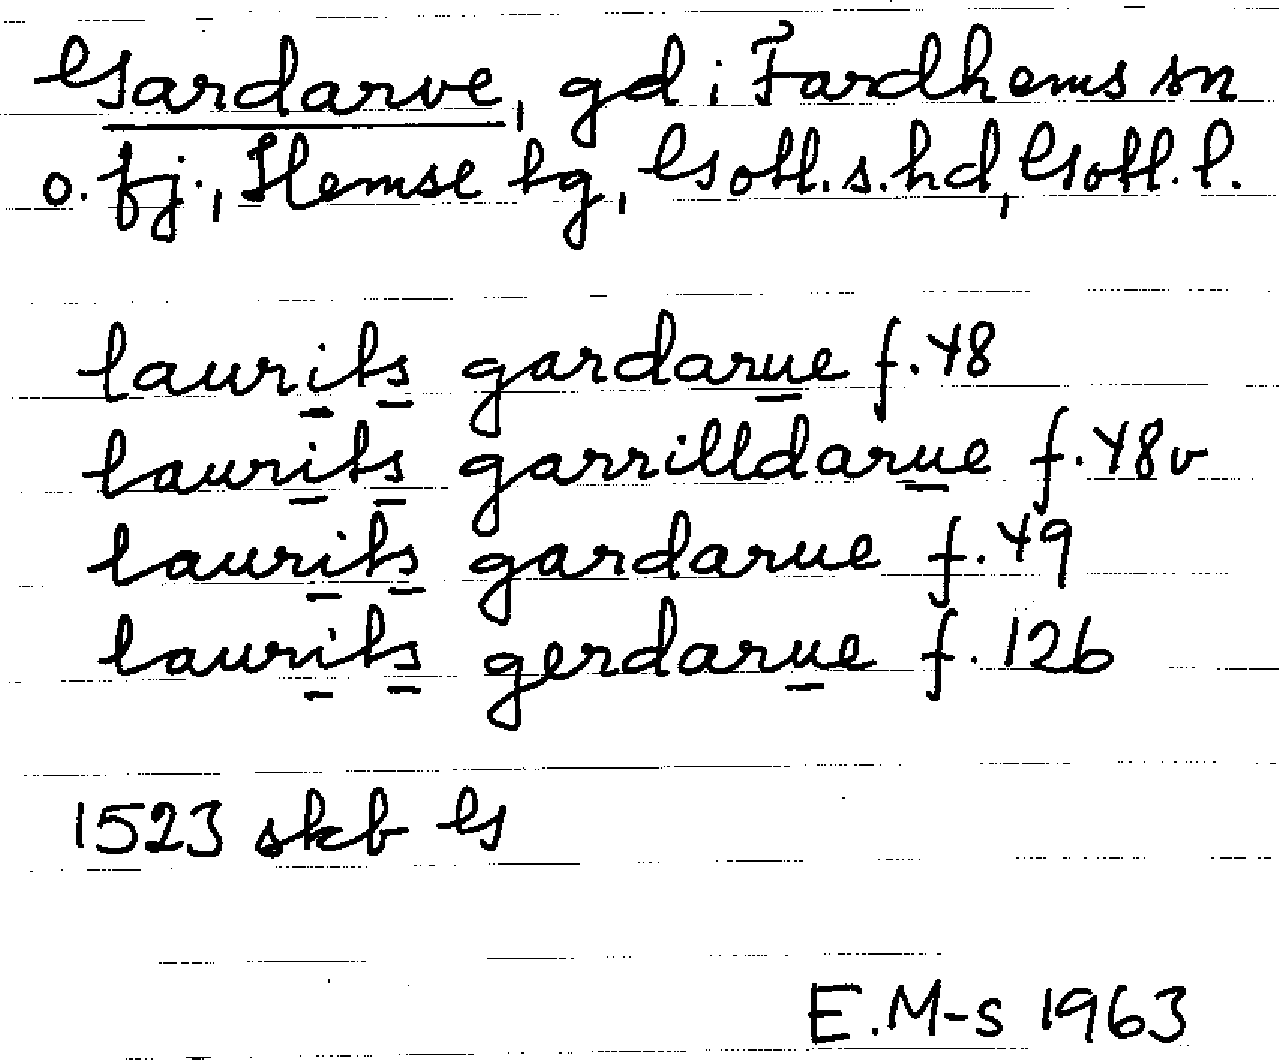 Gardarve, gd i Fardhems sn
o. fj., Hemse tg, Gotl. s. hd, Gotl. l.
laurits gardarue f. 48
laurits garrilldarue f. 48v
laurits gardarue f. 49
laurits gerdarue f. 126
1523 skb G
E.M-s 1963